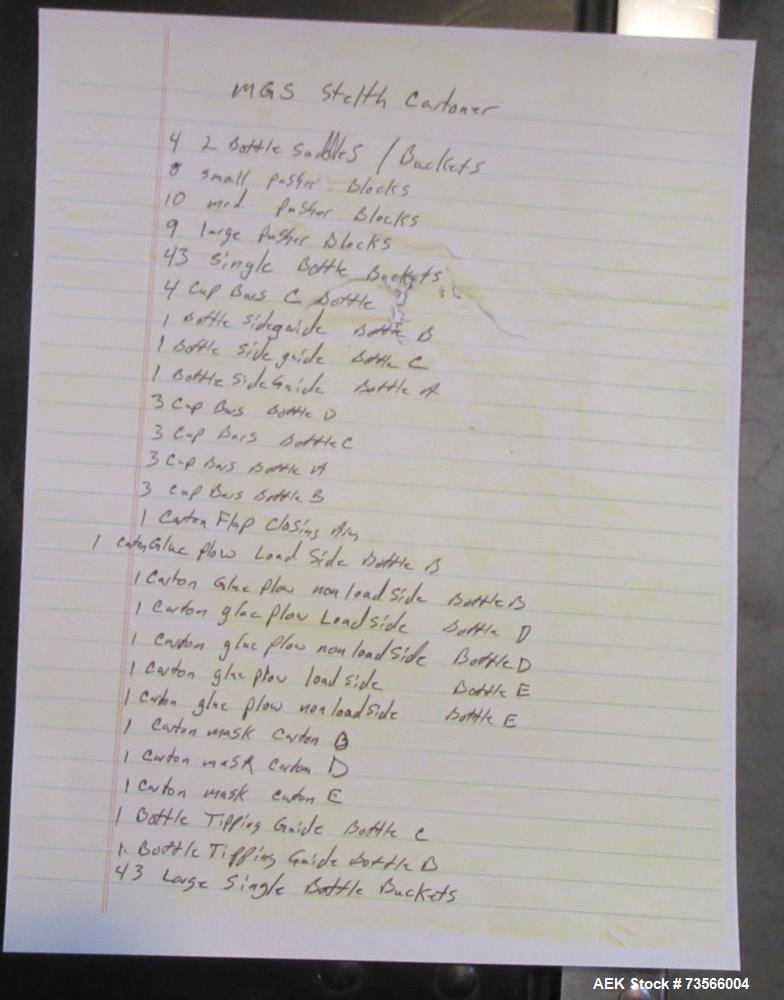 MGS Stelth Cartoner
4 2 Bottle Saddles / Buckets
8 small pusher Blocks
10 med. Pusher Blocks
9 large Pusher Blocks
43 Single Bottle Buckets
4 Cup Bars C Bottle
1 Bottle Sideguide Bottle B
1 Bottle Side guide Bottle C
1 Bottle Side Guide Bottle A
3 Cup Bars Bottle D
3 Cup Bars Bottle C
3 Cup Bars Bottle A
3 Cup Bars Bottle B
1 Carton Flap Closing Arm
1 Carton Glue Plow Load Side Bottle B
1 Carton Glue Plow non load side Bottle B
1 Carton glue Plow Load side Bottle D
1 Carton glue Plow non load side Bottle D
1 Carton glue Plow load side Bottle E
1 Carton glue Plow non load side Bottle E
1 Carton mask Carton B
1 Carton mask Carton D
1 Carton mask Carton E
1 Bottle Tipping Guide Bottle C
1 Bottle Tipping Guide Bottle B
43 Large Single Bottle Buckets
AEK Stock # 73566004